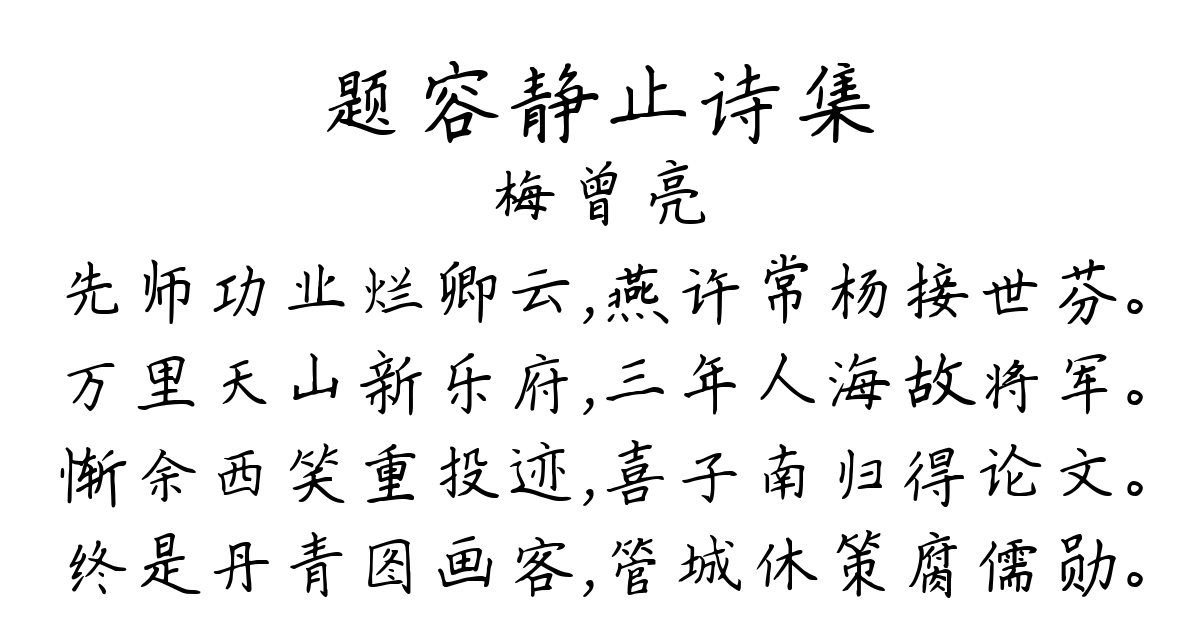 题容静止诗集
梅曾亮
先师功业烂卿云,燕许常杨接世芬。
万里天山新乐府,三年人海故将军。
惭余西笑重投迹,喜子南归得论文。
终是丹青图画客,管城休策腐儒勋。